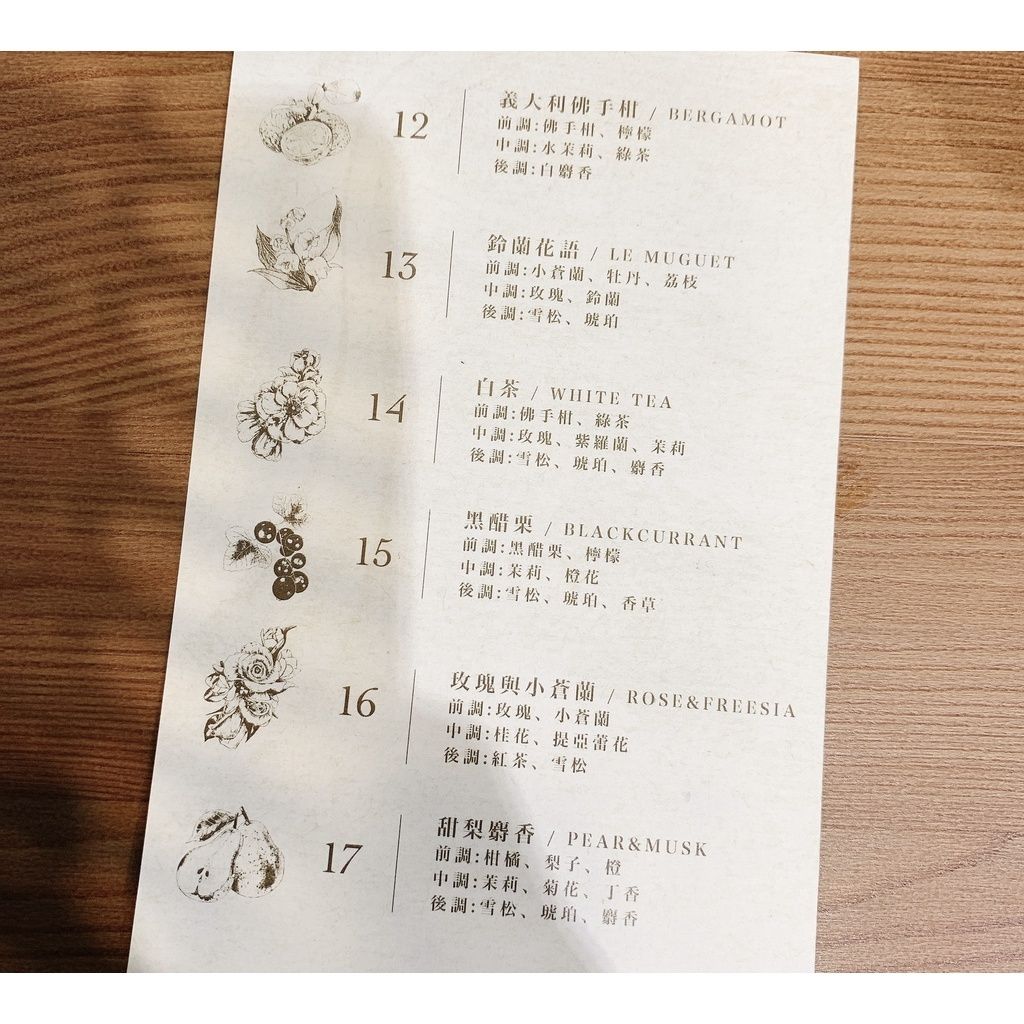 12
義大利佛手柑 / BERGAMOT
前調:佛手柑、檸檬
中調:水茉莉、綠茶
後調:白麝香
13
鈴蘭花語 / LE MUGUET
前調:小蒼蘭、牡丹、荔枝
中調:玫瑰、鈴蘭
後調:雪松、琥珀
14
白茶 / WHITE TEA
前調:佛手柑、綠茶
中調:玫瑰、紫羅蘭、茉莉
後調:雪松、琥珀、麝香
15
黑醋栗 / BLACKCURRANT
前調:黑醋栗、檸檬
中調:茉莉、橙花
後調:雪松、琥珀、香草
16
玫瑰與小蒼蘭 / ROSE&FREESIA
前調:玫瑰、小蒼蘭
中調:桂花、提亞蕾花
後調:紅茶、雪松
17
甜梨麝香 / PEAR&MUSK
前調:柑橘、梨子、橙
中調:茉莉、菊花、丁香
後調:雪松、琥珀、麝香